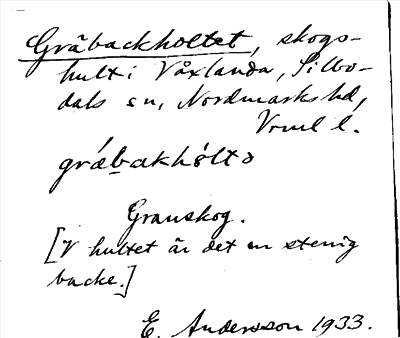 Gråbackholtet, skogs-
hult i Våxlanda, Silbo-
dals sn, Nordmarks hd,
Vrml l.
gråbakhòltə
Granskog.
[I hultet är det en stenig
backe.]
E. Andersson 1933.